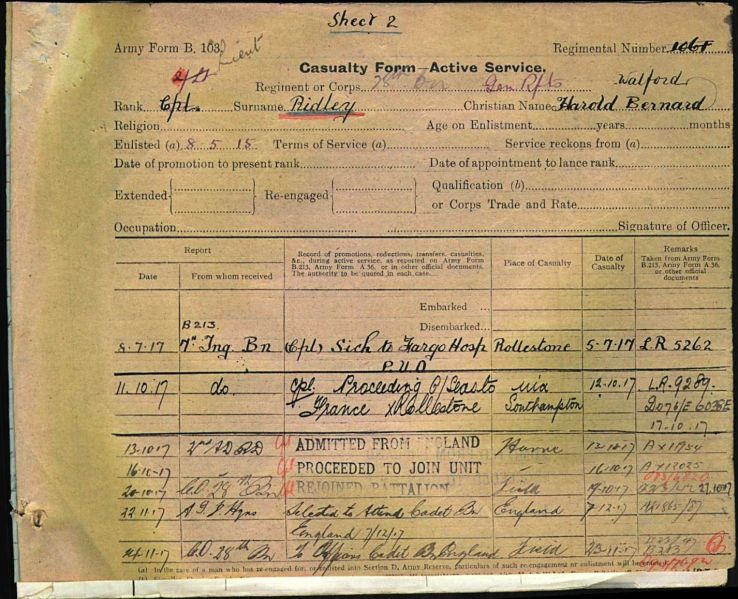 Sheet 2
Army Form B. 103.
Regimental Number
2/Lieut
Casualty Form—Active Service.
Regiment or Corps 28th Bn Gen Rfts Walford
Rank Cpl. Surname Ridley Christian Name Harold Bernard
Religion Age on Enlistment years months
Enlisted (a) 8 5 15 Terms of Service (a) Service reckons from (a)
Date of promotion to present rank Date of appointment to lance rank
Extended Re-engaged Qualification (b)
or Corps Trade and Rate
Occupation Signature of Officer.
Report
Date From whom received
Record of promotions, reductions, transfers, casualties, &c., during active service, as reported on Army Form B.213, Army Form A.36, or in other official documents. The authority to be quoted in each case.
Place of Casualty
Date of Casualty
Remarks
Taken from Army Form B.213, Army Form A.36, or other official documents
Embarked
Disembarked
B213
8-7-17 7th Tng Bn (Cpl) Sick to Fargo Hosp Rollestone 5-7-17 LR 5262
P.U.O
11.10.17 do. Cpl. Proceeding O/Seas to via 12.10.17 L.R. 9289.
France x Rollestone Southampton
17-10-17
13-10-17 ADMITTED FROM ENGLAND Havre
16-10-17 PROCEEDED TO JOIN UNIT 16-10-17
20-10-17 C.O. 28th Bn REJOINED BATTALION Field 19-10-17 27.10.17
22.11.17 Selected to Attend Cadet Bn England 7-12.17
England 7/12.17
24.11.17 C.O. 28th Bn To Officers Cadet Bn England Field 23-11-17 B213
(a) In the case of a man who has re-engaged for, or enlisted into Section D, Army Reserve, particulars of such re-engagement or enlistment will be